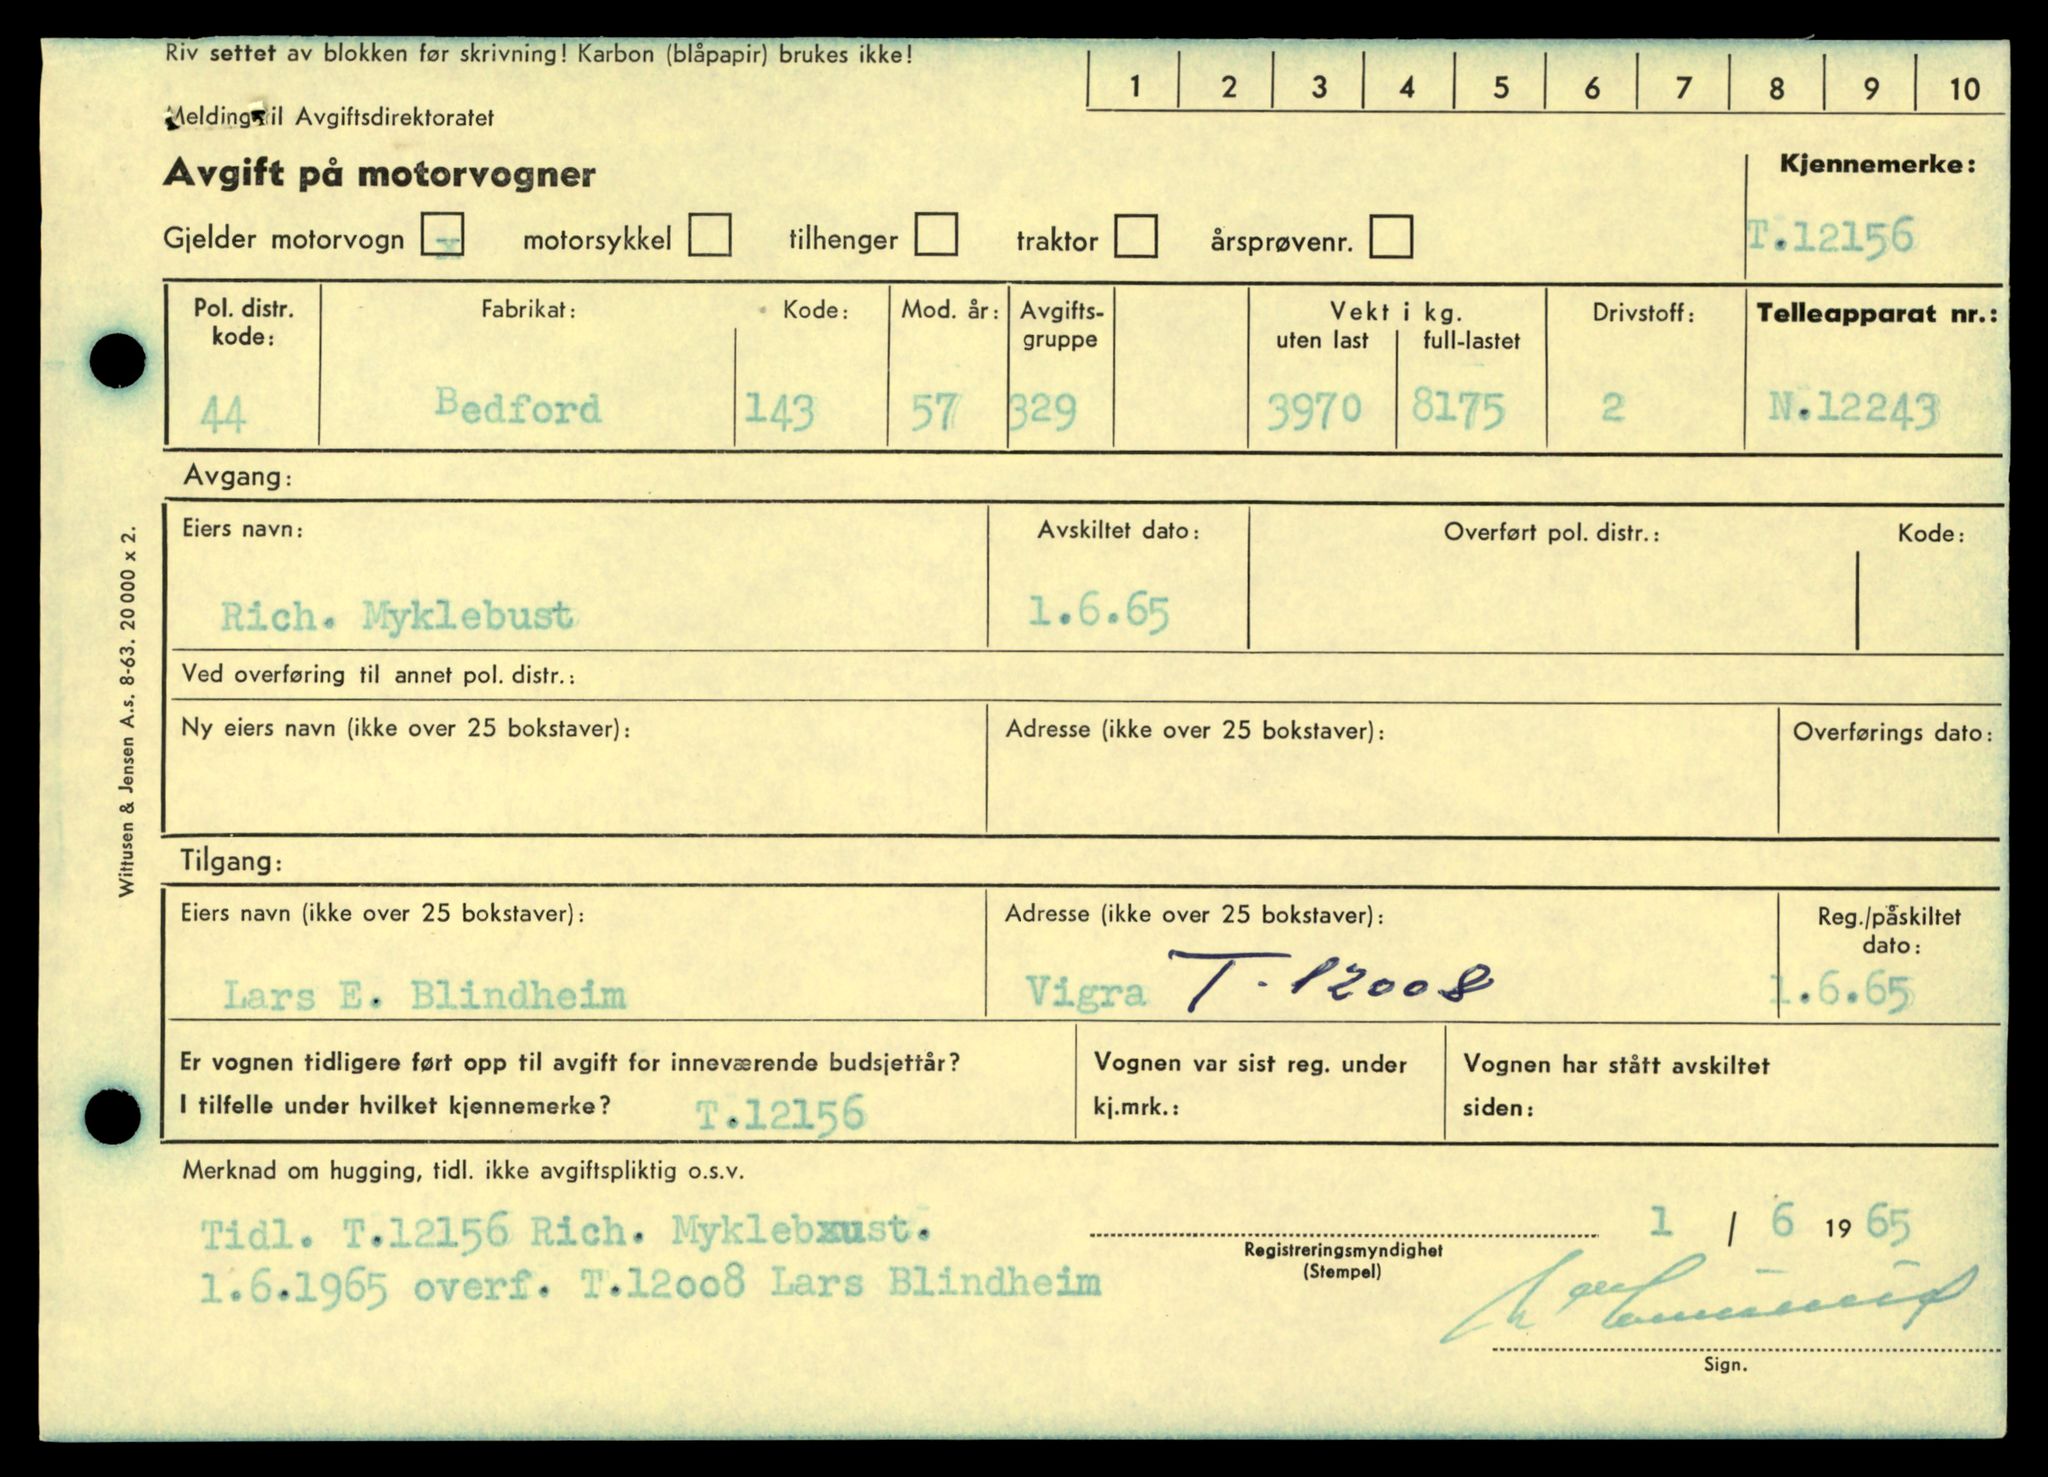 Riv settet av blokken før skrivning! Karbon (blåpapir) brukes ikke!
1 2 3 4 5 6 7 8 9 10
Melding til Avgiftsdirektoratet
Avgift på motorvogner
Kjennemerke:
Gjelder motorvogn x motorsykkel tilhenger traktor årsprøvenr.
T.12156
Pol. distr. kode:
Fabrikat:
Kode:
Mod. år:
Avgifts-
gruppe
Vekt i kg.
uten last
full-lastet
Drivstoff:
Telleapparat nr.:
44 Bedford 143 57 329 3970 8175 2 N.12243
Avgang:
Eiers navn:
Avskiltet dato:
Overført pol. distr.:
Kode:
Rich. Myklebust
1.6.65
Ved overføring til annet pol. distr.:
Ny eiers navn (ikke over 25 bokstaver):
Adresse (ikke over 25 bokstaver):
Overførings dato:
Tilgang:
Eiers navn (ikke over 25 bokstaver):
Adresse (ikke over 25 bokstaver):
Reg./påskiltet
dato:
Lars E. Blindheim
Vigra T.12008
1.6.65
Er vognen tidligere ført opp til avgift for inneværende budsjettår?
I tilfelle under hvilket kjennemerke? T.12156
Vognen var sist reg. under
kj.mrk.:
Vognen har stått avskiltet
siden:
Merknad om hugging, tidl. ikke avgiftspliktig o.s.v.
Tidl. T.12156 Rich. Myklebxust.
1.6.1965 overf. T.12008 Lars Blindheim
1 / 6 19 65
Registreringsmyndighet
(Stempel)
Sign.
Wittusen & Jensen A.s. 8-63. 20 000 x 2.